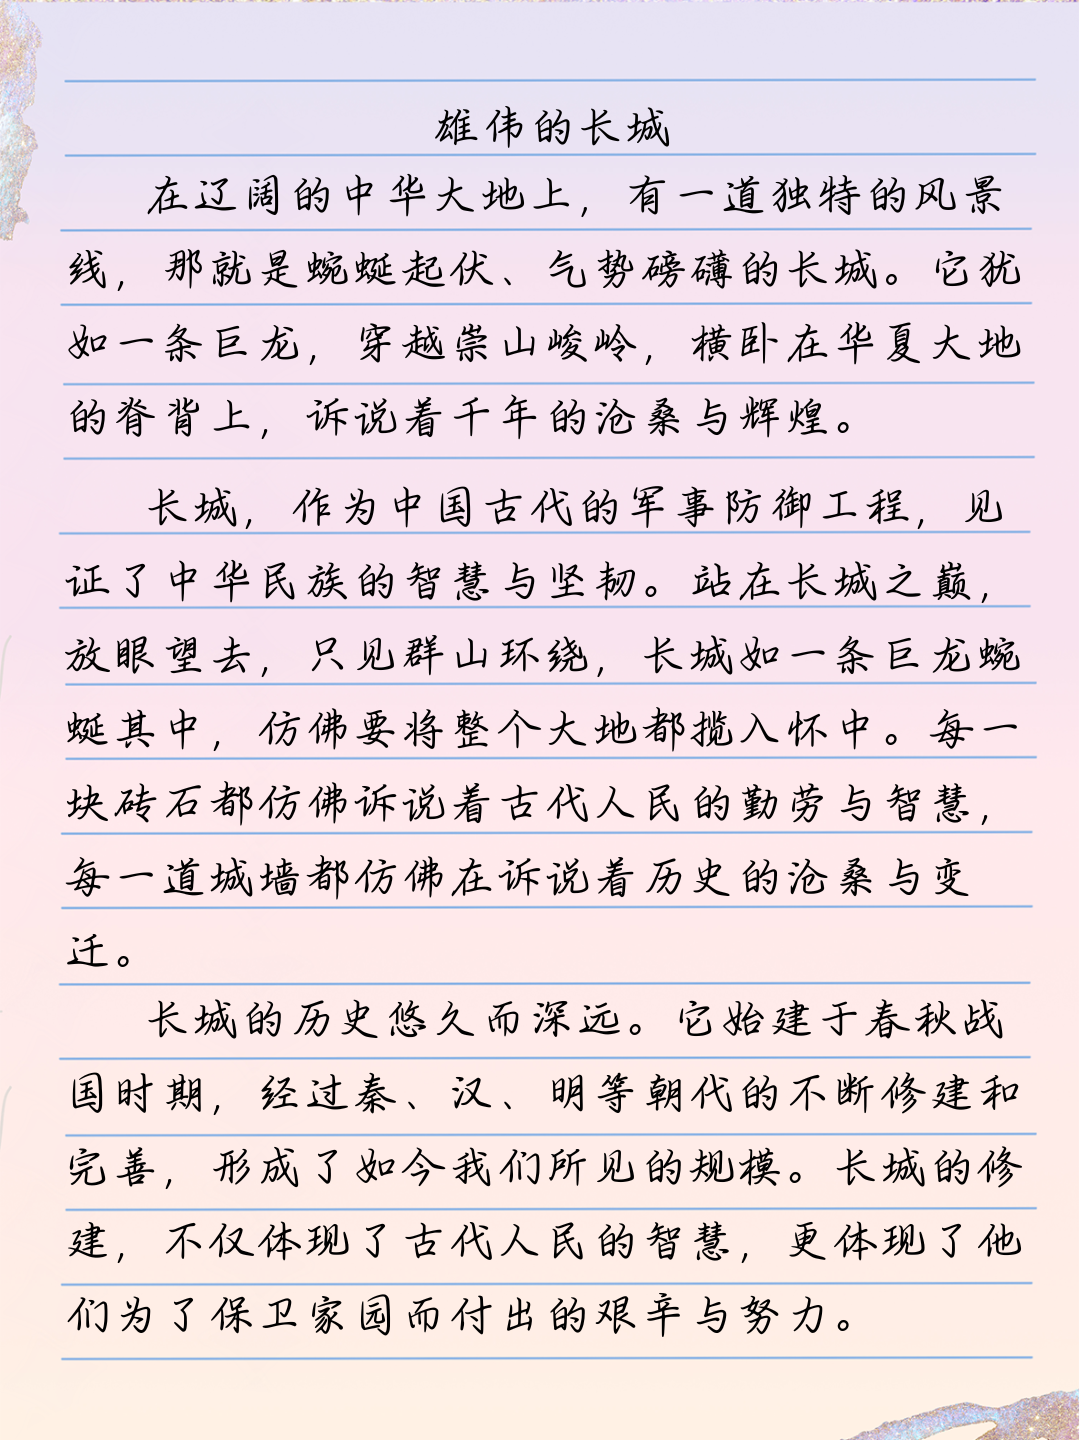 雄伟的长城
在辽阔的中华大地上，有一道独特的风景
线，那就是蜿蜒起伏、气势磅礴的长城。它犹
如一条巨龙，穿越崇山峻岭，横卧在华夏大地
的脊背上，诉说着千年的沧桑与辉煌。
长城，作为中国古代的军事防御工程，见
证了中华民族的智慧与坚韧。站在长城之巅，
放眼望去，只见群山环绕，长城如一条巨龙蜿
蜒其中，仿佛要将整个大地都揽入怀中。每一
块砖石都仿佛诉说着古代人民的勤劳与智慧，
每一道城墙都仿佛在诉说着历史的沧桑与变
迁。
长城的历史悠久而深远。它始建于春秋战
国时期，经过秦、汉、明等朝代的不断修建和
完善，形成了如今我们所见的规模。长城的修
建，不仅体现了古代人民的智慧，更体现了他
们为了保卫家园而付出的艰辛与努力。